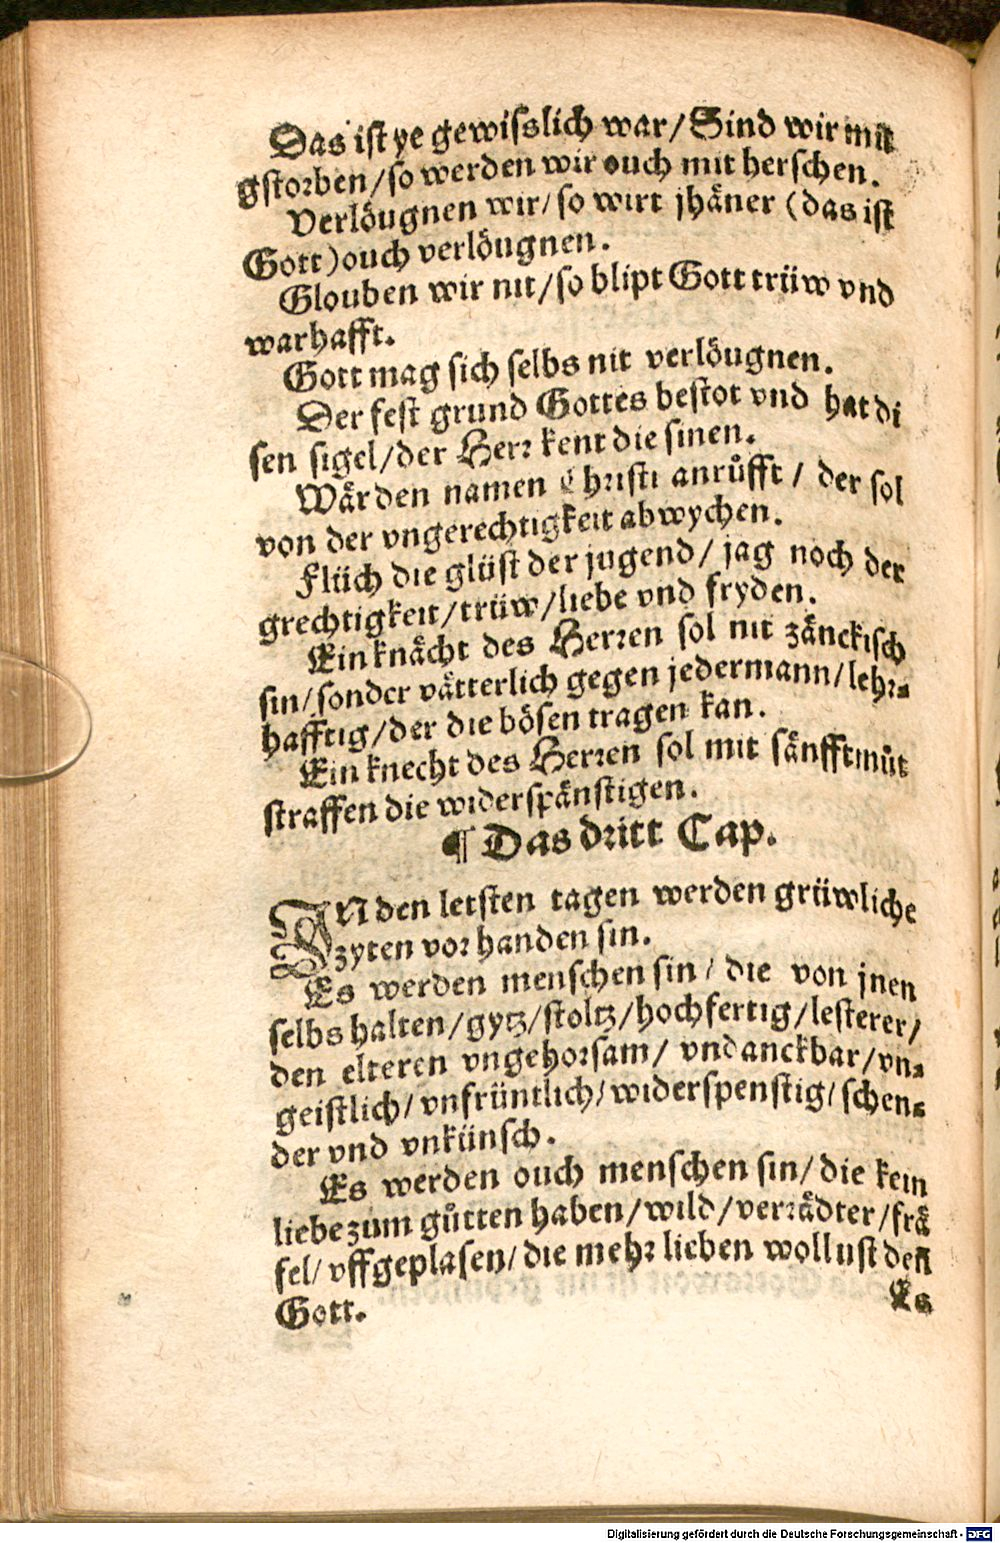 Das ist ye gewisslich war/Sind wir mit
gstorben/so werden wir ouch mit herschen.
Verlöugnen wir/so wirt jhäner (das ist
Gott) ouch verlöugnen.
Glouben wir nit/so blipt Gott trüw vnd
warhafft.
Gott mag sich selbs nit verlöugnen.
Der fest grund Gottes bestot vnd hat di
sen sigel/der Herr kent die sinen.
Wär den namen Christi anrůfft/ der sol
von der vngerechtigkeit abwychen.
Flüch die glüst der jugend/ jag noch der
grechtigkeit/trüw/liebe vnd fryden.
Ein knächt des Herren sol nit zänckisch
sin/sonder vätterlich gegen jedermann/lehr⸗
hafftig/der die bösen tragen kan.
Ein knecht des Herren sol mit sänfftmůt
straffen die widerspänstigen.
¶ Das dritt Cap.
IN den letsten tagen werden grüwliche
zyten vorhanden sin.
Es werden menschen sin/ die von jnen
selbs halten/gytz/stoltz/hochfertig/lesterer/
den elteren vngehorsam/ vndanckbar/vn⸗
geistlich/vnfrüntlich/widerspenstig/schen⸗
der vnd vnkünsch.
Es werden ouch menschen sin/die kein
liebe zum gůtten haben/wild/verrädter/frä
fel/vffgeplasen/die mehr lieben wollust deñ
Gott.
Es
Digitalisierung gefördert durch die Deutsche Forschungsgemeinschaft - DFG